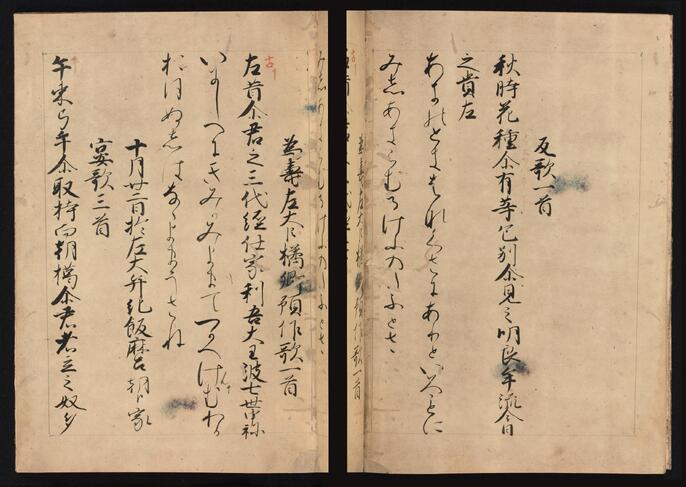 反歌一首
秋時花種尓有等色別尓見之明良牟流今日
之貴左
あきのときはなくさ〳〵にありといろことに
みしあきらむるけふのたふとさ
為壽左大臣橘卿預作歌一首
古
左昔尓君之三代經仕家利吾大主波七世申祢
いにしへにきみかみよまてつかへけむわか
おほぬしはなゝよまうさね
十月廿二日於左大弁紀飯麻呂朝臣家
宴歌三首
手束弓手尓取持而朝獦尓君者立之奴多